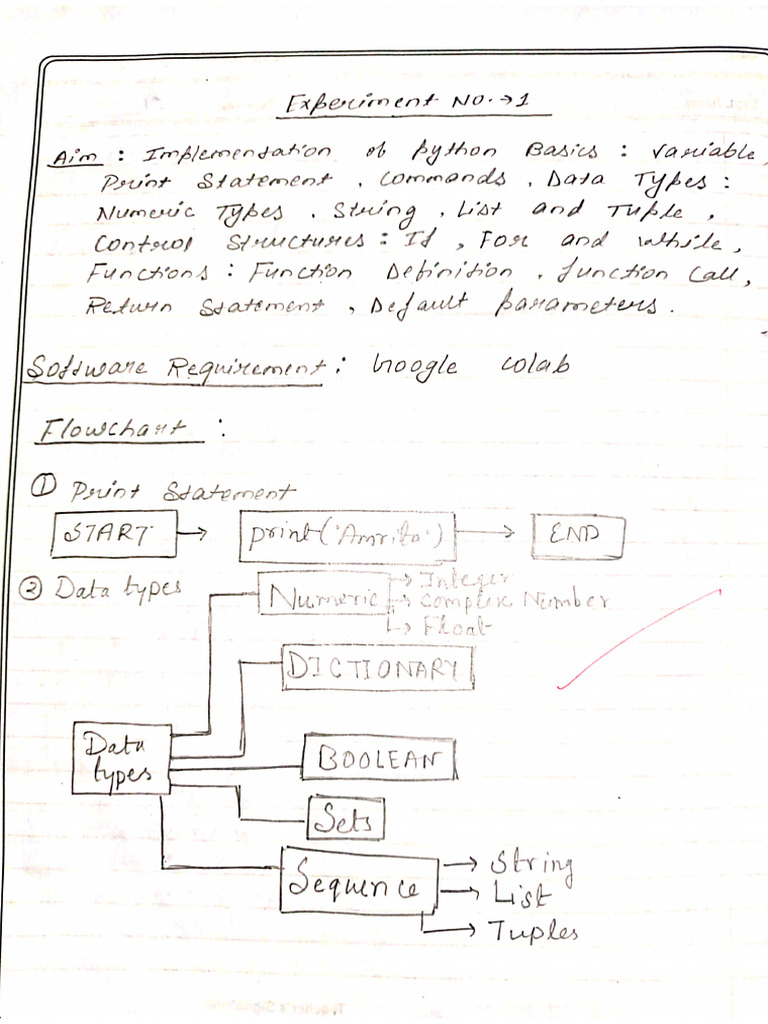 Experiment No. → 1
Aim : Implementation of Python Basics : Variable,
Print Statement, Commands, Data Types :
Numeric Types, String, List and Tuple,
Control Structures : If, For and While,
Functions : Function Definition, function Call,
Return Statement, Default parameters.
Software Requirement : Google Colab
Flowchart :
① Print Statement
START → print('Amrita') → END
② Data types
Numeric → Integer
→ Complex Number
→ Float
DICTIONARY
Data
types
BOOLEAN
Sets
Sequence → String
→ List
→ Tuples